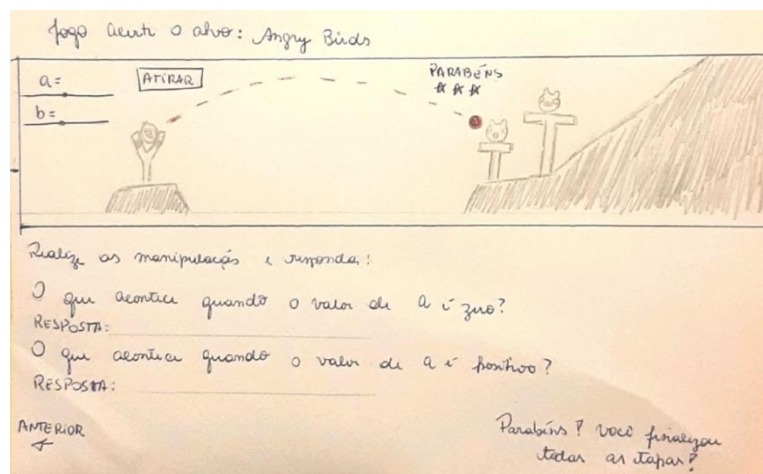 Jogo Acerte o alvo: Angry Birds
a=
b=
ATIRAR
PARABÉNS
Realize as manipulações e responda:
O que acontece quando o valor de a é zero?
RESPOSTA:
O que acontece quando o valor de a é positivo?
RESPOSTA:
ANTERIOR
Parabéns! Você finalizou
todas as etapas!